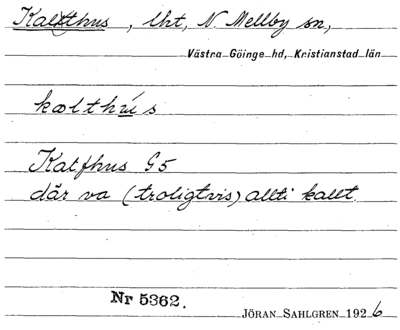 Kallthus, lht, N. Mellby sn,
Västra Göinge hd, Kristianstad län
kælthús
Katfhus G5
där va (troligtvis) allti kallt.
Nr 5362.
JÖRAN SAHLGREN 1926